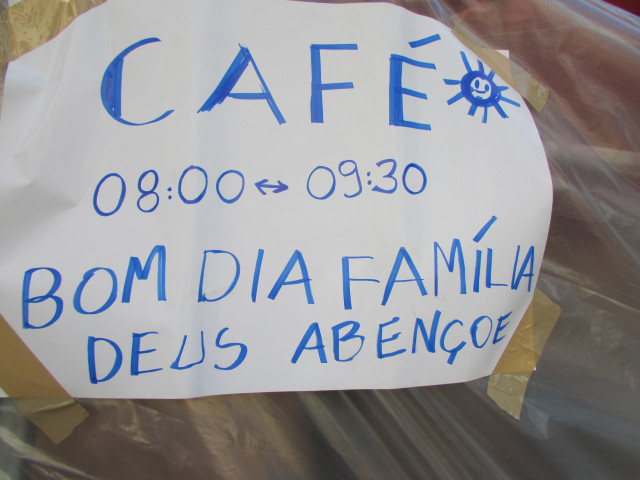 CAFÉ
08:00 ↔ 09:30
BOM DIA FAMÍLIA
DEUS ABENÇOE